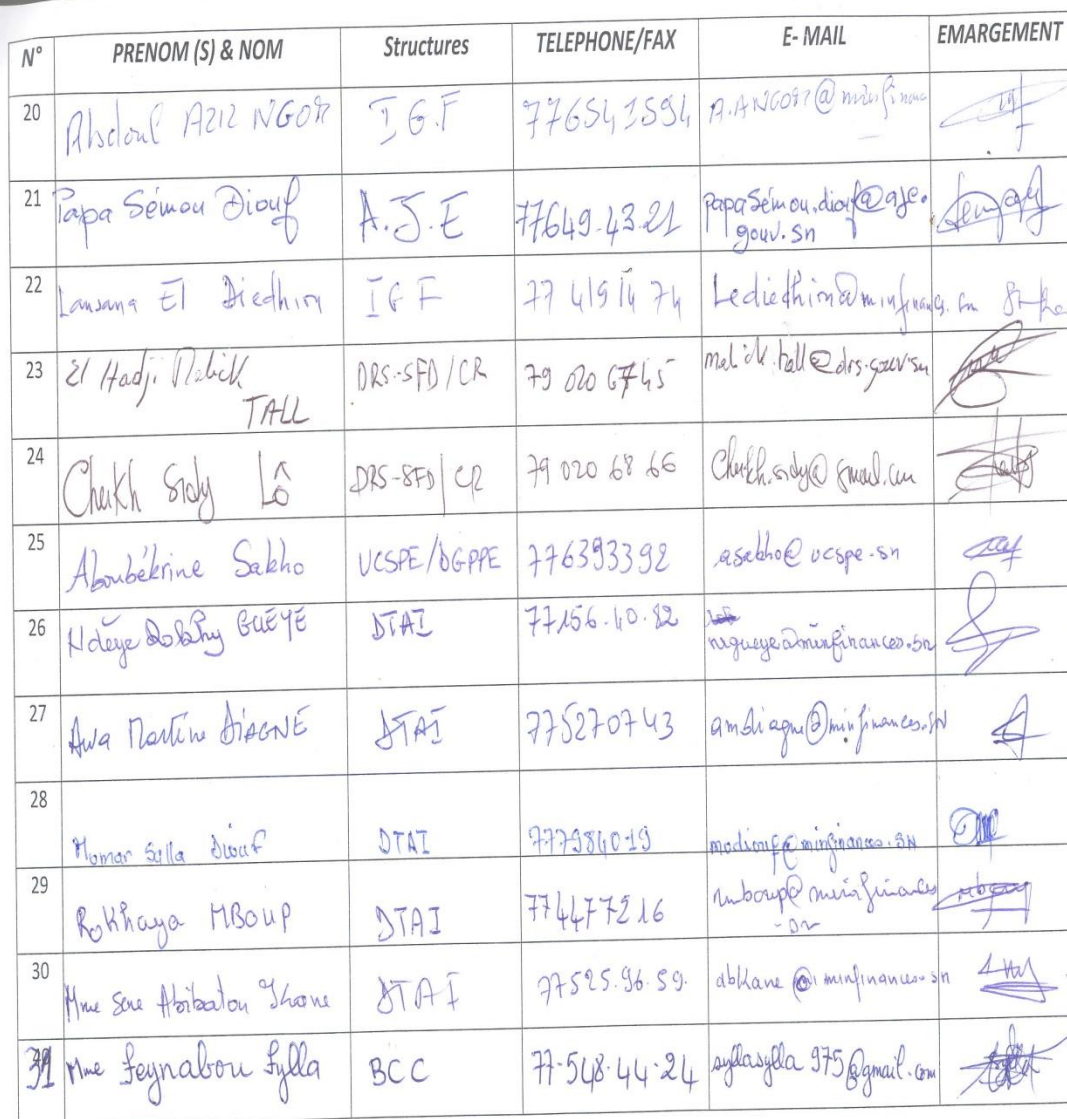 N° PRENOM (S) & NOM Structures TELEPHONE/FAX E- MAIL EMARGEMENT
20 Abdoul AZIZ NGOM I G.F 776541594 @minfinanc
21 Papa Sémou Diouf A.J.E 77649.43.21 papasémou.diouf@aje.
gouv.sn
22 Lansana El Diedhiou IGF 77 419 14 74 Lediedhiou@minfinances.sn
23 El Hadji Malick DRS-SFD/CR 79 020 6745 malick.tall@drs.gouv.sn
TALL
24 Cheikh Sidy Lô DRS-SFD/CR 79 020 68 66 Cheikh.sidy@gmail.com
25 Aboubékrine Sakho UCSPE/DGPPE 776393392 asakho@ucspe.sn
26 Ndèye GUÈYE DTAI 77156.40.82
@minfinances.sn
27 Awa Martine DIAGNE DTAI 775270743 amdiagne@minfinances.SN
28 Momar Sylla Diouf DTAI 777984019 modiouf@minfinances.SN
29 Rokhaya MBOUP DTAI 774477216 rmboup@minfinances
30 Mme Sene Abibatou DTAI 77525.96.59. abkane@minfinances.sn
31 Mme Seynabou Sylla BCC 77.548.44.24 syllasylla975@gmail.com